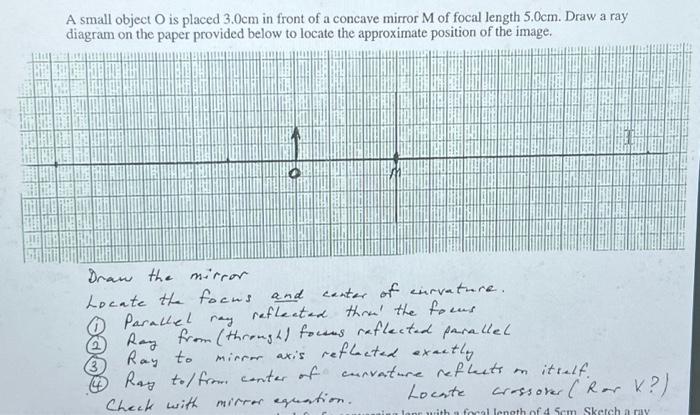 A small object O is placed 3.0cm in front of a concave mirror M of focal length 5.0cm. Draw a ray
diagram on the paper provided below to locate the approximate position of the image.
O
M
Draw the mirror
Locate the focus and center of curvature.
① Parallel ray reflected thru' the focus
② Ray from (through) focus reflected parallel
③ Ray to mirror axis reflected exactly
④ Ray to/from center of curvature reflects on itself.
Check with mirror equation. Locate crossover (R or V?)
lens with a focal length of 4.5cm. Sketch a ray